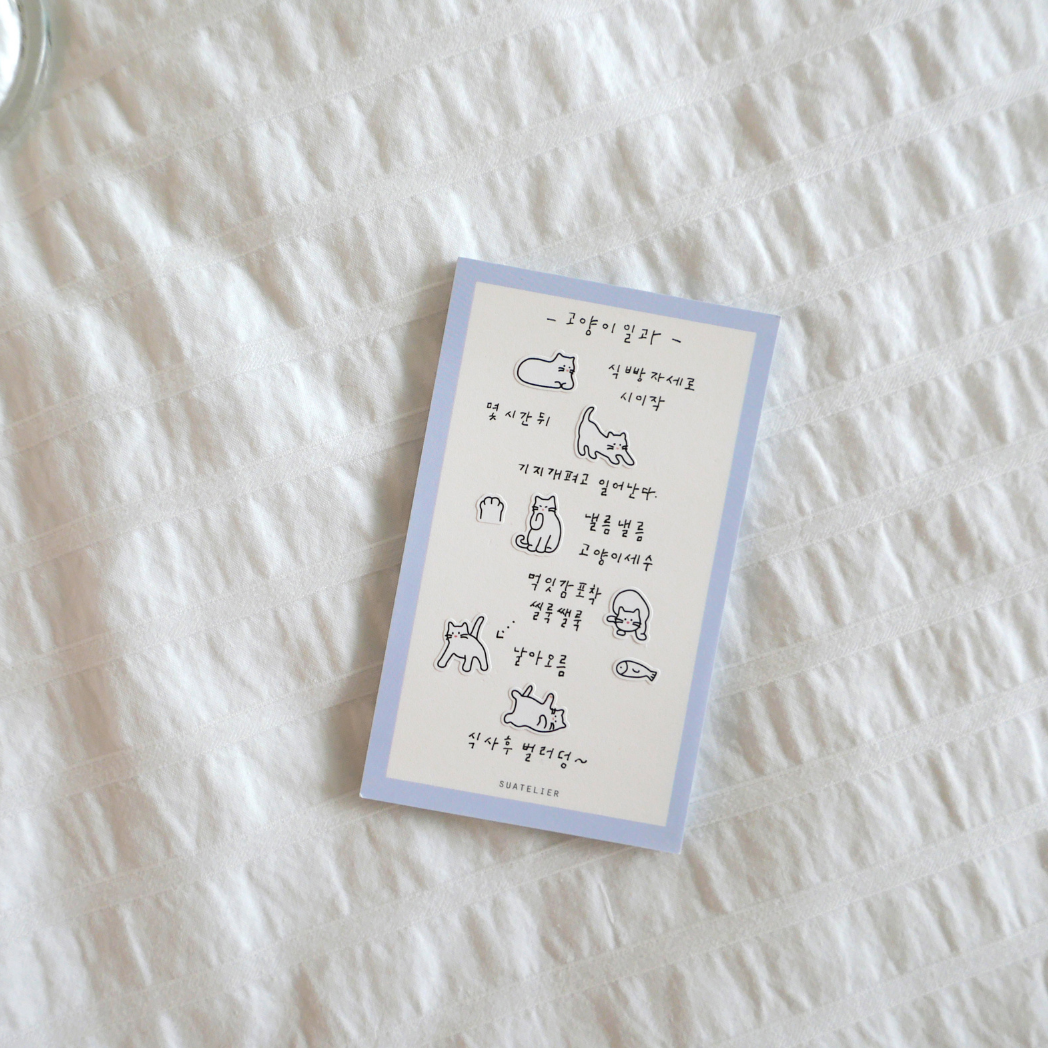 - 고양이 일과 -
식빵 자세로
시이작
몇 시간 뒤
기지개펴고 일어난다.
낼름 낼름
고양이세수
먹잇감 포착
씰룩쌜룩
날아오름
식사후 벌러덩~
SUATELIER